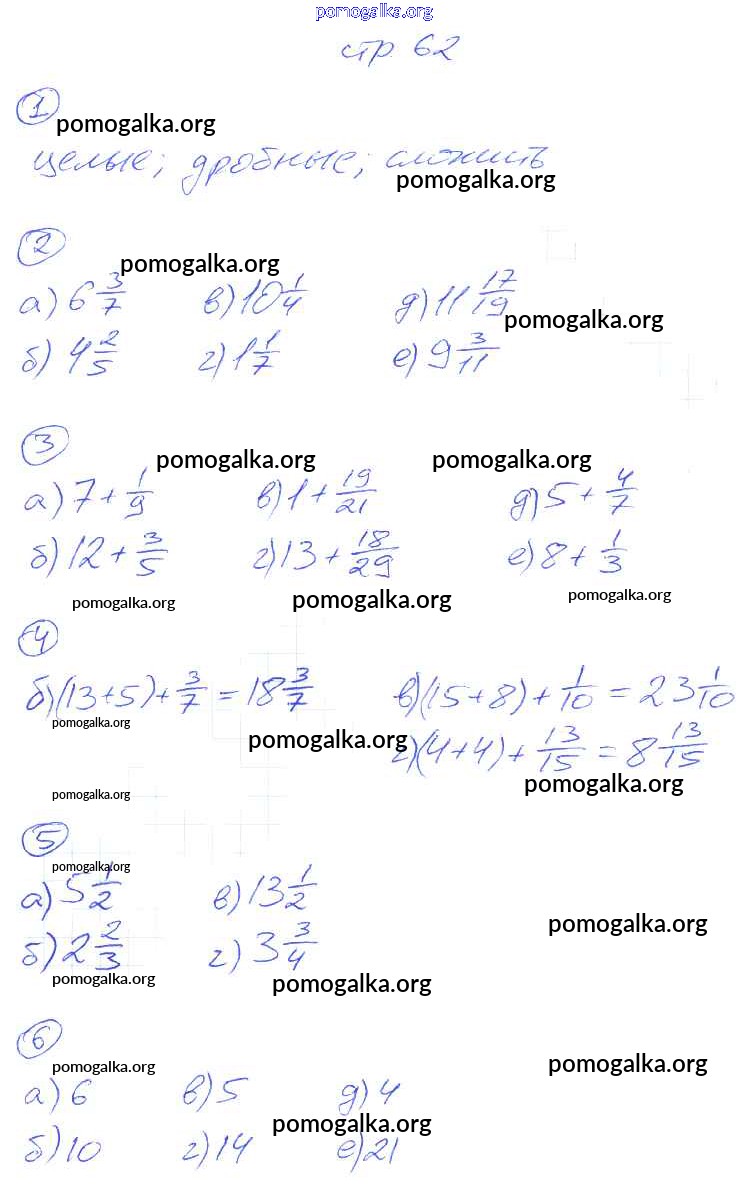 pomogalka.org
стр. 62
1
pomogalka.org
целые; дробные; сложить
pomogalka.org
2
pomogalka.org
а) 6 3/7 в) 10 1/4 д) 11 17/19
pomogalka.org
б) 4 2/5 г) 1 1/7 е) 9 3/11
3
pomogalka.org pomogalka.org
а) 7 + 1/9 в) 1 + 19/21 д) 5 + 4/7
б) 12 + 3/5 г) 13 + 18/29 е) 8 + 1/3
pomogalka.org pomogalka.org pomogalka.org
4
б) (13+5) + 3/7 = 18 3/7 в) (15+8) + 1/10 = 23 1/10
pomogalka.org
pomogalka.org г) (4+4) + 13/15 = 8 13/15
pomogalka.org pomogalka.org
5
pomogalka.org
а) 5 1/2 в) 13 1/2
pomogalka.org
б) 2 2/3 г) 3 3/4
pomogalka.org pomogalka.org
6
pomogalka.org pomogalka.org
а) 6 в) 5 д) 4
pomogalka.org
б) 10 г) 14 е) 21